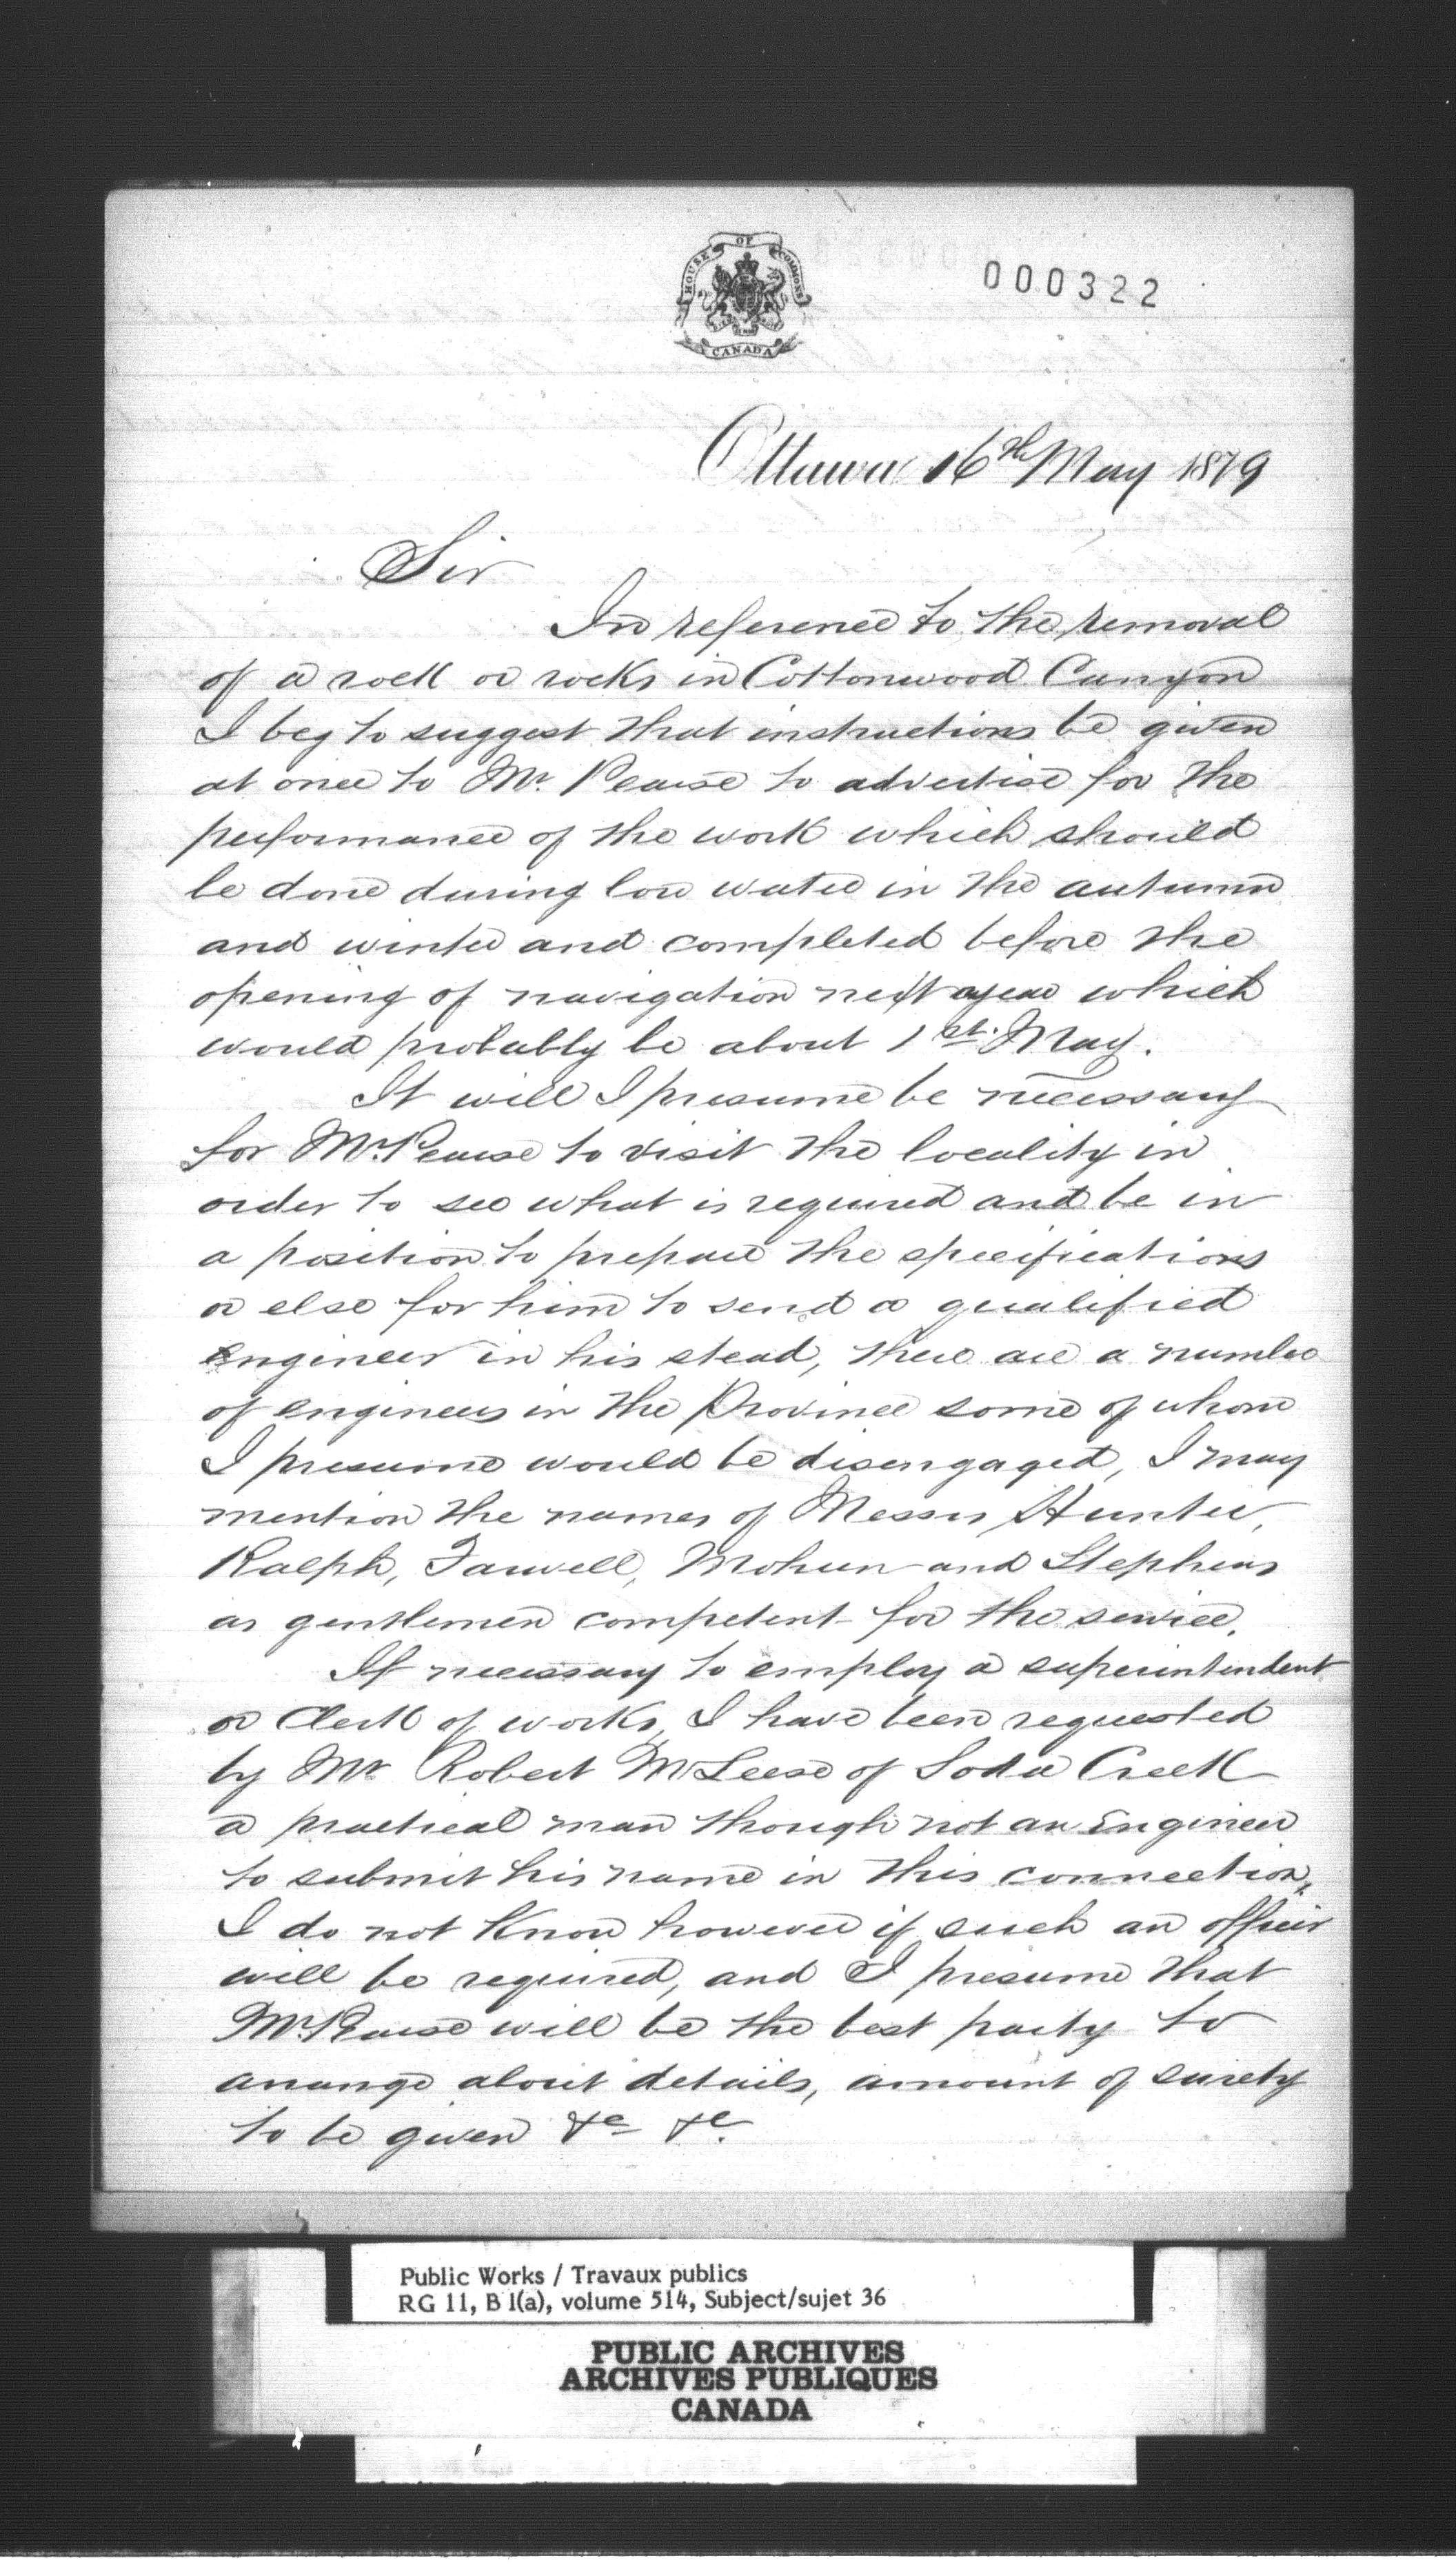 HOUSE OF COMMONS
CANADA
000322
Ottawa 16th May 1879
Sir
In reference to the removal
of a rock or rocks in Cottonwood Canyon
I beg to suggest that instructions be given
at once to Mr. Pearse to advertise for the
performance of the work which should
be done during low water in the autumn
and winter and completed before the
opening of navigation next year which
would probably be about 1st. May.
It will I presume be necessary
for Mr. Pearse to visit the locality in
order to see what is required and be in
a position to prepare the specifications
or else for him to send a qualified
engineer in his stead, there are a number
of engineers in the Province some of whom
I presume would be disengaged, I may
mention the names of Messrs Hunter,
Ralph, Farwell, Mohun and Stephens
as gentlemen competent for the service.
If necessary to employ a superintendent
or Clerk of works, I have been requested
by Mr Robert McLeese of Soda Creek
a practical man though not an Engineer
to submit his name in this connection,
I do not know however if such an officer
will be required, and I presume that
Mr Pearse will be the best party to
arrange about details, amount of surety
to be given &c &c.
Public Works / Travaux publics
RG 11, B 1(a), volume 514, Subject/sujet 36
PUBLIC ARCHIVES
ARCHIVES PUBLIQUES
CANADA